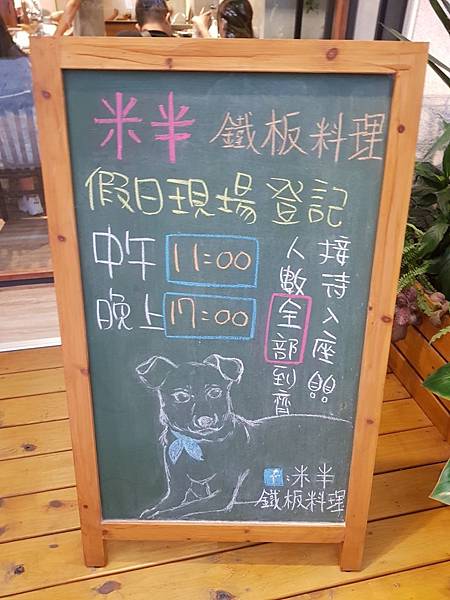 米半 鐵板料理
假日現場 登記
中午 11:00
晚上 17:00
人數全部到齊
接待入座!!
f:米半
鐵板料理